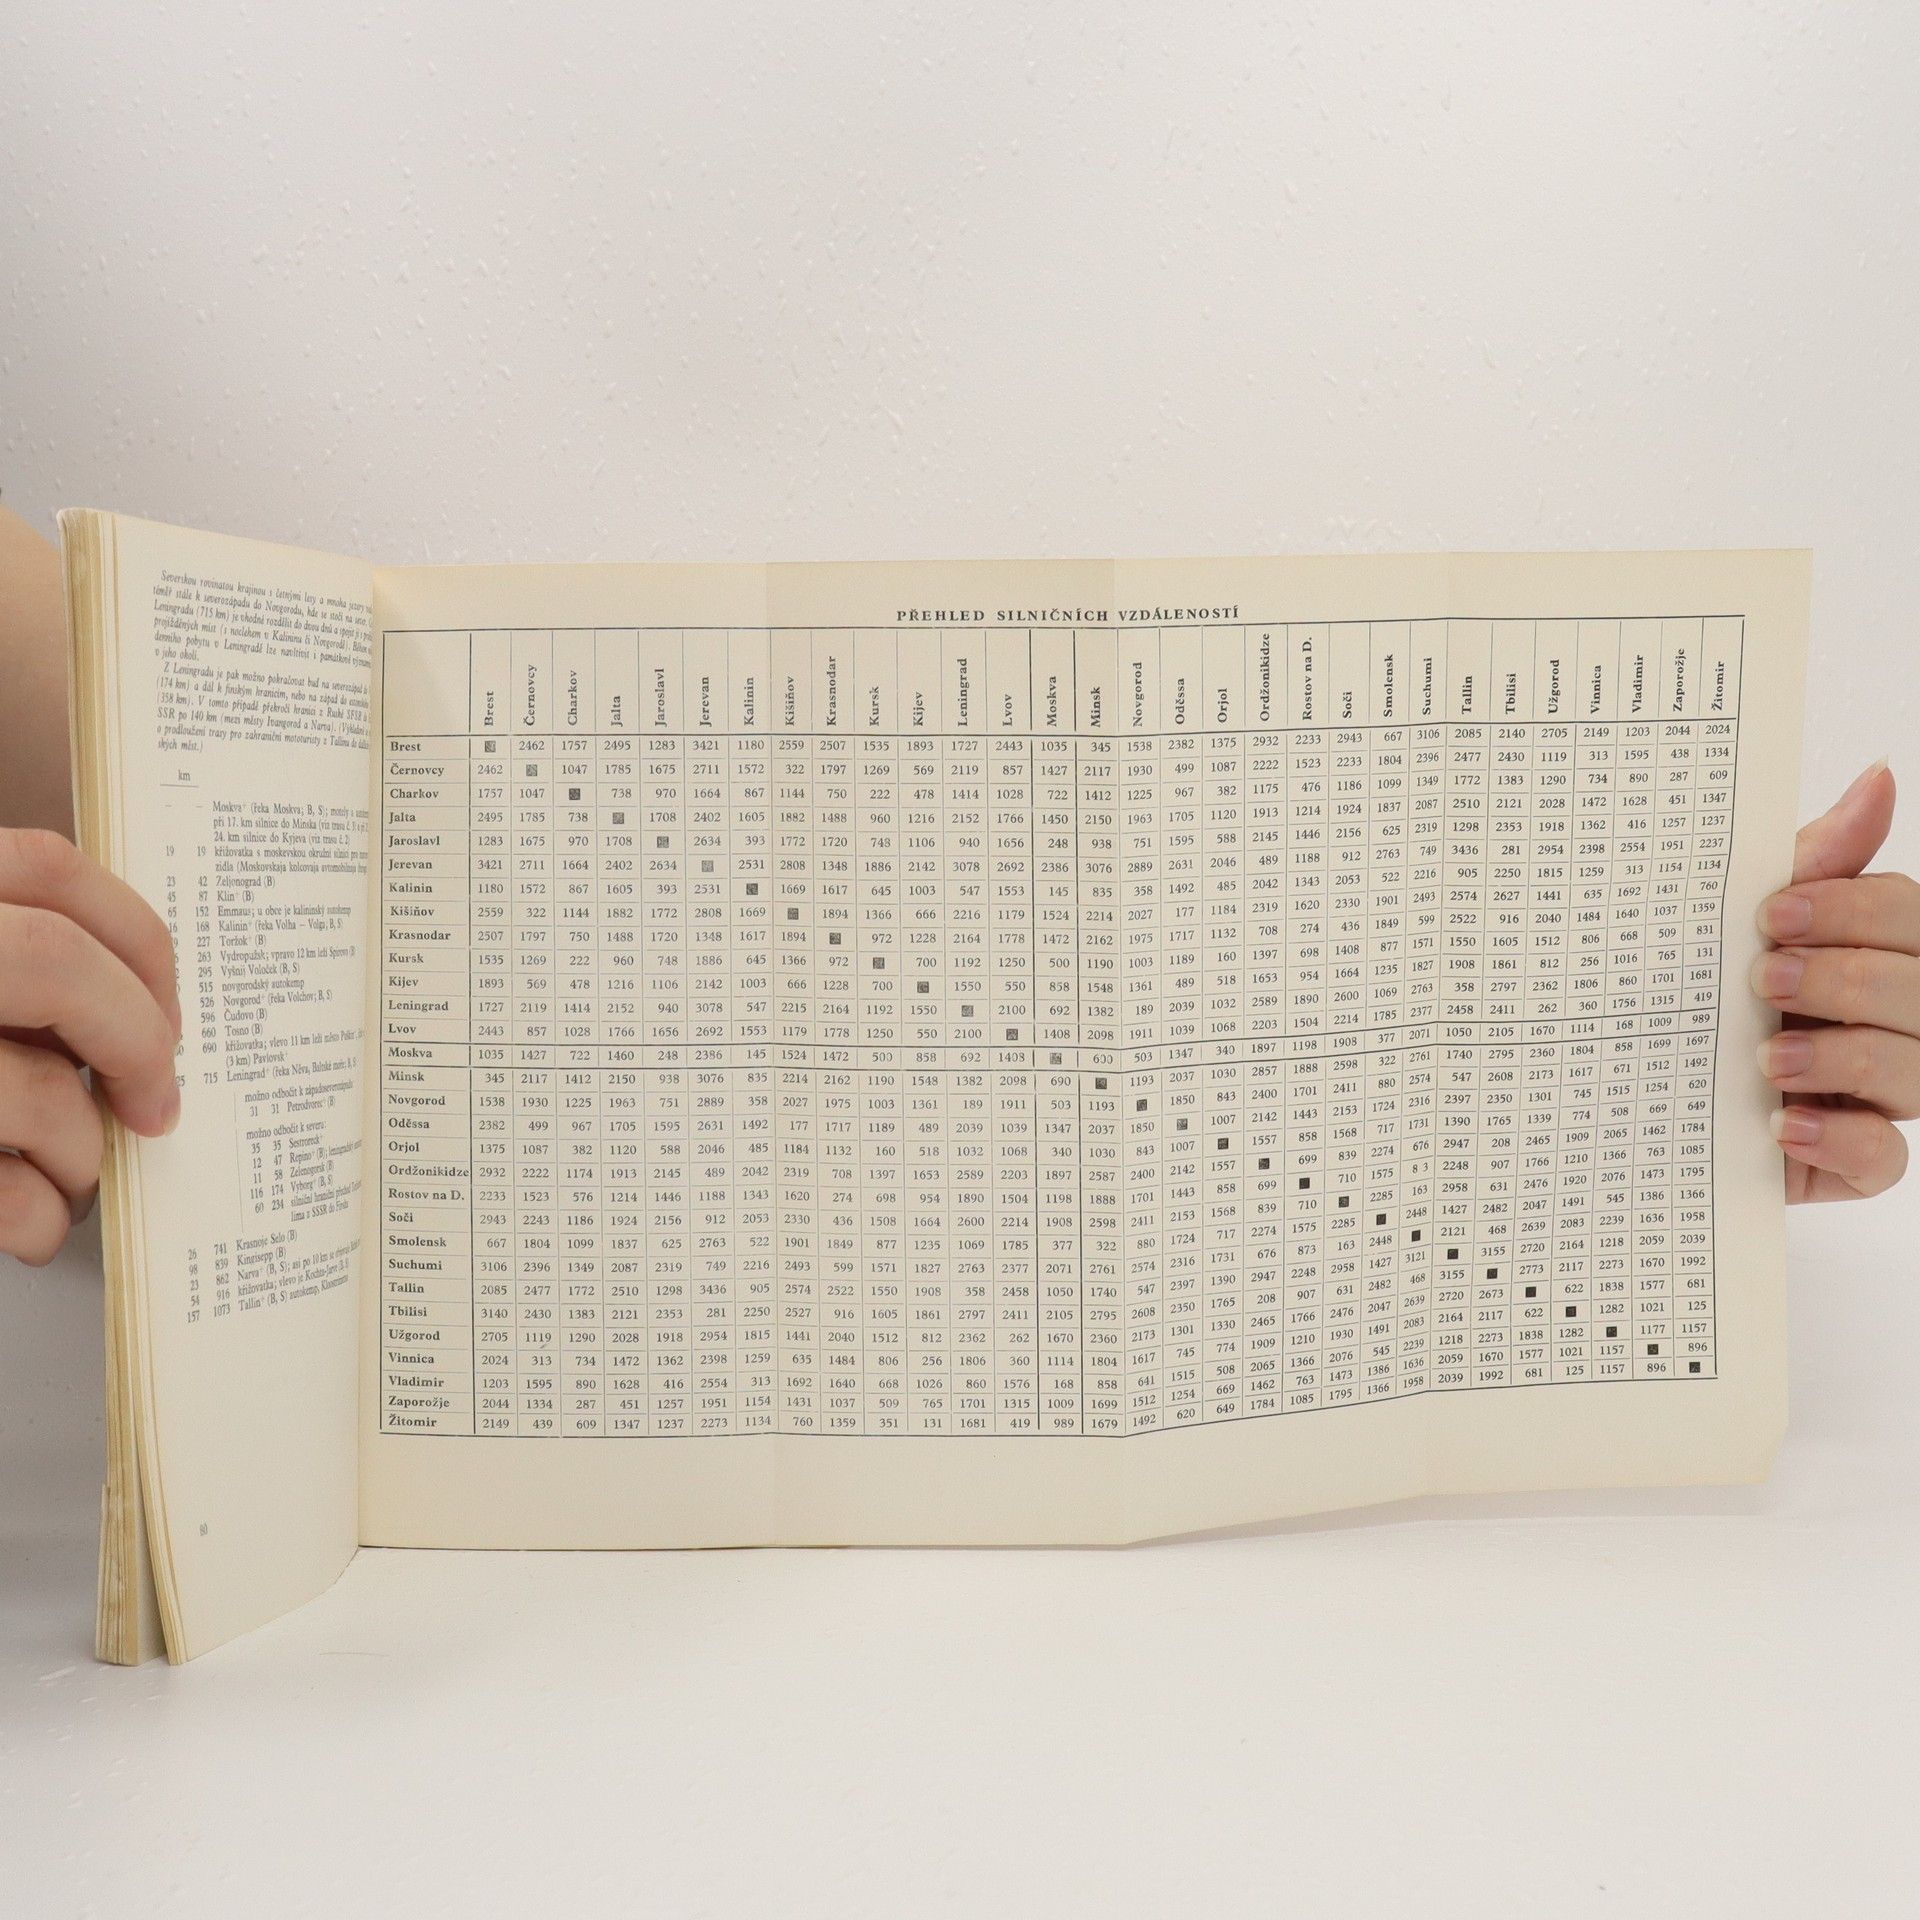 Severskou rovinatou krajinou s četnými lesy a mnoha jezery
téměř stále k severozápadu do Novgorodu, kde se stočí na sever.
Leningradu (715 km) je vhodné rozdělit do dvou dnů a spojit ji s
projížděných míst (s noclehem v Kalininu či Novgorodě). Během
denního pobytu v Leningradě lze navštívit i památkově
v jeho okolí.
Z Leningradu je pak možno pokračovat buď na severozápad
(174 km) a dál k finským hranicím, nebo na západ do
(358 km). V tomto případě překročí hranici z Ruské SFSR
SSR po 140 km (mezi městy Ivangorod a Narva).
o prodloužení trasy pro zahraniční mototuristy z Tallinu do
ských měst.)
km
– – Moskva+ (řeka Moskva; B, S); motely a
při 17. km silnice do Minska (viz trasu č.
24. km silnice do Kyjeva (viz trasu č. 2)
19 19 křižovatka s moskevskou okružní silnicí pro
zidla (Moskovskaja kolcovaja avtomobilnaja
23 42 Zeljonograd (B)
45 87 Klin+ (B)
65 152 Emmaus; u obce je kalininský autokemp
16 168 Kalinin+ (řeka Volha – Volga, B, S)
227 Toržok+ (B)
263 Vydropužsk; vpravo 12 km leží Spirovo (B)
295 Vyšnij Voloček (B, S)
515 novgorodský autokemp
526 Novgorod+ (řeka Volchov; B, S)
596 Čudovo (B)
660 Tosno (B)
690 křižovatka; vlevo 11 km leží město Puškin
(3 km) Pavlovsk+
25 715 Leningrad+ (řeka Něva, Baltské moře; B, S
možno odbočit k západoseverozápadu
31 31 Petrodvorec+ (B)
možno odbočit k severu:
35 35 Sestroreck+
12 47 Repino+ (B);
11 58 Zelenogorsk (B)
116 174 Vyborg+ (B, S)
60 234 silniční hraniční přechod
lima z SSSR do Finska
26 741 Krasnoje Selo (B)
98 839 Kingisepp (B)
23 862 Narva+ (B, S); asi po 10 km se
54 916 křižovatka; vlevo je Kochtla-Jarve (B, S)
157 1073 Tallin+ (B, S) autokemp,
80
PŘEHLED SILNIČNÍCH VZDÁLENOSTÍ
Brest Černovcy Charkov Jalta Jaroslavl Jerevan Kalinin Kišiňov Krasnodar Kursk Kijev Leningrad Lvov Moskva Minsk Novgorod Oděssa Orjol Ordžonikidze Rostov na D. Soči Smolensk Suchumi Tallin Tbilisi Užgorod Vinnica Vladimir Zaporožje Žitomir
Brest 2462 1757 2495 1283 3421 1180 2559 2507 1535 1893 1727 2443 1035 345 1538 2382 1375 2932 2233 2943 667 3106 2085 2140 2705 2149 1203 2044 2024
Černovcy 2462 1047 1785 1675 2711 1572 322 1797 1269 569 2119 857 1427 2117 1930 499 1087 2222 1523 2233 1804 2396 2477 2430 1119 313 1595 438 1334
Charkov 1757 1047 738 970 1664 867 1144 750 222 478 1414 1028 722 1412 1225 967 382 1175 476 1186 1099 1349 1772 1383 1290 734 890 287 609
Jalta 2495 1785 738 1708 2402 1605 1882 1488 960 1216 2152 1766 1450 2150 1963 1705 1120 1913 1214 1924 1837 2087 2510 2121 2028 1472 1628 451 1347
Jaroslavl 1283 1675 970 1708 2634 393 1772 1720 748 1106 940 1656 248 938 751 1595 588 2145 1446 2156 625 2319 1298 2353 1918 1362 416 1257 1237
Jerevan 3421 2711 1664 2402 2634 2531 2808 1348 1886 2142 3078 2692 2386 3076 2889 2631 2046 489 1188 912 2763 749 3436 281 2954 2398 2554 1951 2237
Kalinin 1180 1572 867 1605 393 2531 1669 1617 645 1003 547 1553 145 835 358 1492 485 2042 1343 2053 522 2216 905 2250 1815 1259 313 1154 1134
Kišiňov 2559 322 1144 1882 1772 2808 1669 1894 1366 666 2216 1179 1524 2214 2027 177 1184 2319 1620 2330 1901 2493 2574 2627 1441 635 1692 1431 760
Krasnodar 2507 1797 750 1488 1720 1348 1617 1894 972 1228 2164 1778 1472 2162 1975 1717 1132 708 274 436 1849 599 2522 916 2040 1484 1640 1037 1359
Kursk 1535 1269 222 960 748 1886 645 1366 972 700 1192 1250 500 1190 1003 1189 160 1397 698 1408 877 1571 1550 1605 1512 806 668 509 831
Kijev 1893 569 478 1216 1106 2142 1003 666 1228 700 1550 550 858 1548 1361 489 518 1653 954 1664 1235 1827 1908 1861 812 256 1016 765 131
Leningrad 1727 2119 1414 2152 940 3078 547 2215 2164 1192 1550 2100 692 1382 189 2039 1032 2589 1890 2600 1069 2763 358 2797 2362 1806 860 1701 1681
Lvov 2443 857 1028 1766 1656 2692 1553 1179 1778 1250 550 2100 1408 2098 1911 1039 1068 2203 1504 2214 1785 2377 2458 2411 262 360 1756 1315 419
Moskva 1035 1427 722 1460 248 2386 145 1524 1472 500 858 692 1408 600 503 1347 340 1897 1198 1908 377 2071 1050 2105 1670 1114 168 1009 989
Minsk 345 2117 1412 2150 938 3076 835 2214 2162 1190 1548 1382 2098 690 1193 2037 1030 2857 1888 2598 322 2761 1740 2795 2360 1804 858 1699 1697
Novgorod 1538 1930 1225 1963 751 2889 358 2027 1975 1003 1361 189 1911 503 1193 1850 843 2400 1701 2411 880 2574 547 2608 2173 1617 671 1512 1492
Oděssa 2382 499 967 1705 1595 2631 1492 177 1717 1189 489 2039 1039 1347 2037 1850 1007 2142 1443 2153 1724 2316 2397 2350 1301 745 1515 1254 620
Orjol 1375 1087 382 1120 588 2046 485 1184 1132 160 518 1032 1068 340 1030 843 1007 1557 858 1568 717 1731 1390 1765 1339 774 508 669 649
Ordžonikidze 2932 2222 1174 1913 2145 489 2042 2319 708 1397 1653 2589 2203 1897 2587 2400 2142 1557 699 839 2274 676 2947 208 2465 1909 2065 1462 1784
Rostov na D. 2233 1523 576 1214 1446 1188 1343 1620 274 698 954 1890 1504 1198 1888 1701 1443 858 699 710 1575 8 3 2248 907 1766 1210 1366 763 1085
Soči 2943 2243 1186 1924 2156 912 2053 2330 436 1508 1664 2600 2214 1908 2598 2411 2153 1568 839 710 2285 163 2958 631 2476 1920 2076 1473 1795
Smolensk 667 1804 1099 1837 625 2763 522 1901 1849 877 1235 1069 1785 377 322 880 1724 717 2274 1575 2285 2448 1427 2482 2047 1491 545 1386 1366
Suchumi 3106 2396 1349 2087 2319 749 2216 2493 599 1571 1827 2763 2377 2071 2761 2574 2316 1731 676 873 163 2448 2121 468 2639 2083 2239 1636 1958
Tallin 2085 2477 1772 2510 1298 3436 905 2574 2522 1550 1908 358 2458 1050 1740 547 2397 1390 2947 2248 2958 1427 3121 3155 2720 2164 1218 2059 2039
Tbilisi 3140 2430 1383 2121 2353 281 2250 2527 916 1605 1861 2797 2411 2105 2795 2608 2350 1765 208 907 631 2482 468 3155 2773 2117 2273 1670 1992
Užgorod 2705 1119 1290 2028 1918 2954 1815 1441 2040 1512 812 2362 262 1670 2360 2173 1301 1330 2465 1766 2476 2047 2639 2720 2673 622 1838 1577 681
Vinnica 2024 313 734 1472 1362 2398 1259 635 1484 806 256 1806 360 1114 1804 1617 745 774 1909 1210 1930 1491 2083 2164 2117 622 1282 1021 125
Vladimir 1203 1595 890 1628 416 2554 313 1692 1640 668 1026 860 1576 168 858 641 1515 508 2065 1366 2076 545 2239 1218 2273 1838 1282 1177 1157
Zaporožje 2044 1334 287 451 1257 1951 1154 1431 1037 509 765 1701 1315 1009 1699 1512 1254 669 1462 763 1473 1386 1636 2059 1670 1577 1021 1157 896
Žitomir 2149 439 609 1347 1237 2273 1134 760 1359 351 131 1681 419 989 1679 1492 620 649 1784 1085 1795 1366 1958 2039 1992 681 125 1157 896